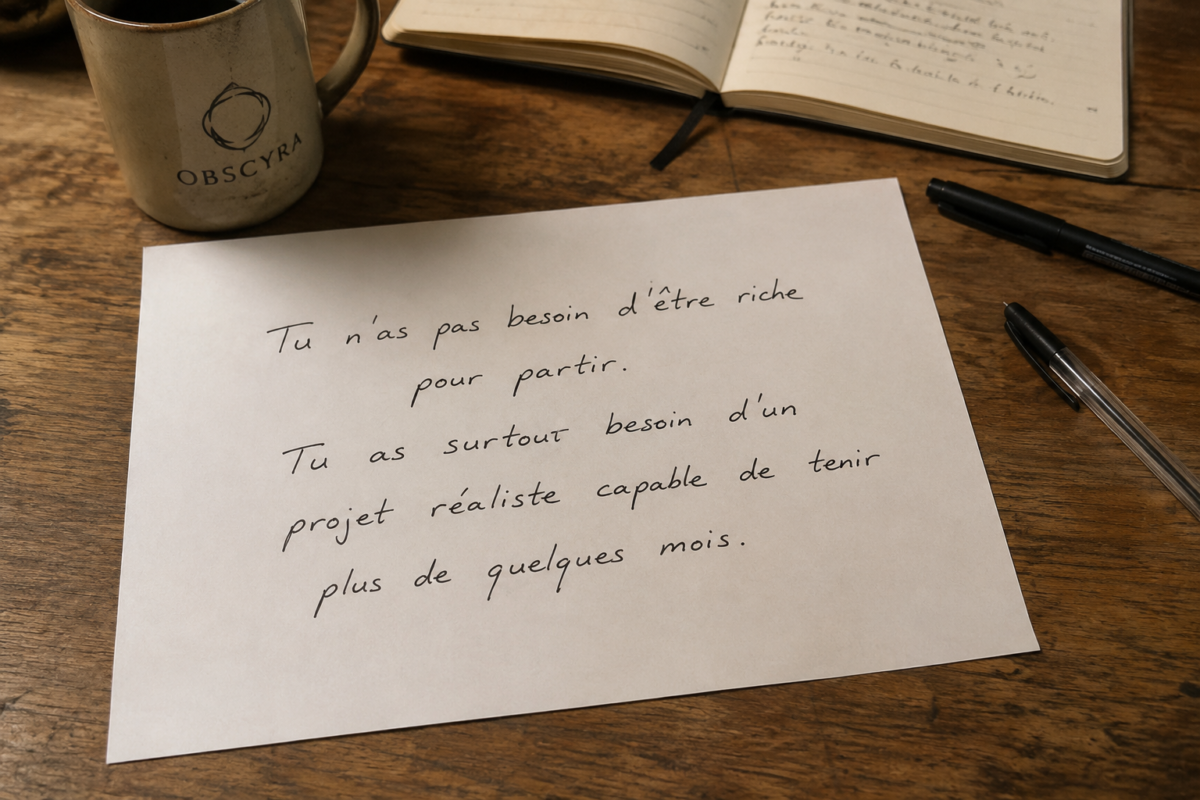 OBSCYRA
Tu n'as pas besoin d'être riche
pour partir.
Tu as surtout besoin d'un
projet réaliste capable de tenir
plus de quelques mois.